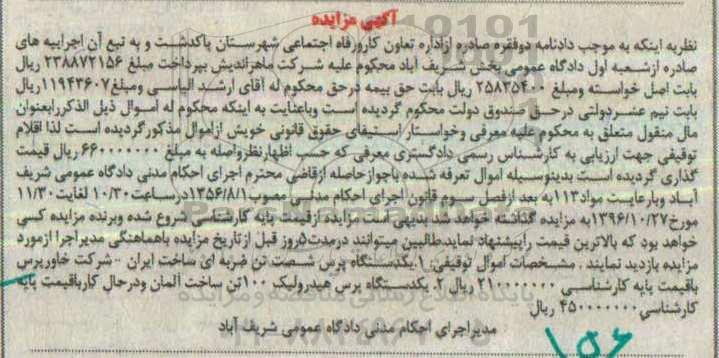 آگهی مزایده
نظریه اینکه به موجب دادنامه دوفقره صادره ازاداره تعاون کارورفاه اجتماعی شهرستان پاکدشت و به تبع آن اجراییه های
صادره ازشعبه اول دادگاه عمومی بخش شریف آباد محکوم علیه شرکت ماهراندیش بپرداخت مبلغ ۲۳۸۸۷۲۱۵۶ ریال
بابت اصل خواسته ومبلغ ۲۵۸۲۵۴۰۰ ریال بابت حق بیمه درحق محکوم له آقای ارشد الیاسی ومبلغ ۱۱۹۴۳۶۰۷ ریال
بابت نیم عشردولتی درحق صندوق دولت محکوم گردیده است وباعنایت به اینکه محکوم له اموال ذیل الذکررابعنوان
مال منقول متعلق به محکوم علیه معرفی وخواستار استیفای حقوق قانونی خویش ازاموال مذکورگردیده است لذا اقلام
توقیفی جهت ارزیابی به کارشناس رسمی دادگستری معرفی که حسب اظهارنظرواصله به مبلغ ۶۶۰۰۰۰۰۰۰ ریال قیمت
گذاری گردیده است بدینوسیله اموال تعرفه شده باجوازحاصله ازقاضی محترم اجرای احکام مدنی دادگاه عمومی شریف
آباد وبارعایت مواد۱۱۳به بعد ازفصل سوم قانون اجرای احکام مدنی مصوب ۱۳۵۶/۸/۱درساعت۱۰/۳۰ لغایت۱۱/۳۰
مورخ۱۳۹۶/۱۰/۲۷به مزایده گذاشته خواهد شد بدیهی است مزایده ازقیمت پایه کارشناسی شروع شده وبرنده مزایده کسی
خواهد بود که بالاترین قیمت راپیشنهاد نماید.طالبین میتوانند درمدت۵روز قبل ازتاریخ مزایده باهماهنگی مدیراجرا ازمورد
مزایده بازدید نمایند . مشخصات اموال توقیفی: ۱.یکدستگاه پرس شصت تن ضربه ای ساخت ایران -شرکت خاورپرس
باقیمت پایه کارشناسی ۲۱۰۰۰۰۰۰۰ ریال ۲. یکدستگاه پرس هیدرولیک ۱۰۰تن ساخت آلمان ودرحال کارباقیمت پایه
کارشناسی۴۵۰۰۰۰۰۰۰ ریال
مدیراجرای احکام مدنی دادگاه عمومی شریف آباد
پایگاه اطلاع رسانی مناقصه و مزایده